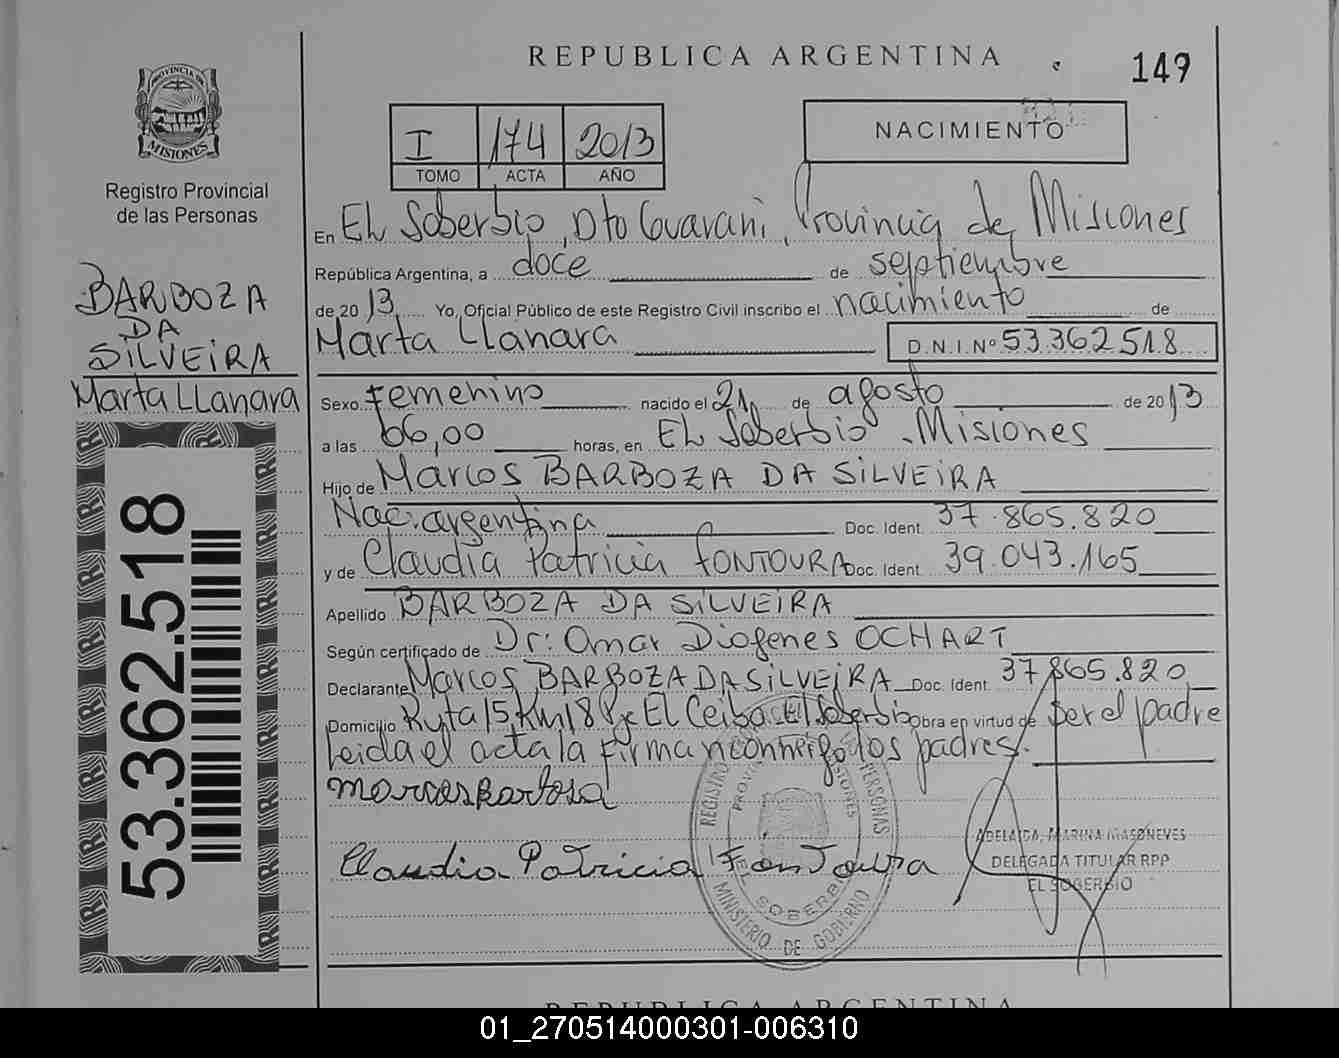 REPUBLICA ARGENTINA
149
PROVINCIA DE
MISIONES
Registro Provincial
de las Personas
I 174 2013
TOMO ACTA AÑO
NACIMIENTO
En EL Soberbio, Dto Guaraní, Provincia de Misiones
República Argentina, a doce de septiembre
de 2013 Yo, Oficial Público de este Registro Civil inscribo el nacimiento de
Marta LLanara D.N.I.Nº 53.362.518
BARBOZA
DA
SILVEIRA
Marta LLanara
53.362.518
Sexo Femenino nacido el 21 de agosto de 2013
a las 06,00 horas, en EL Soberbio - Misiones
Hijo de Marcos BARBOZA DA SILVEIRA
Nac. argentina Doc. Ident. 37.865.820
y de Claudia Patricia FONTOURA Doc. Ident. 39.043.165
Apellido BARBOZA DA SILVEIRA
Según certificado de Dr: Omar Diogenes OCHART
Declarante Marcos BARBOZA DA SILVEIRA Doc. Ident. 37.865.820
Domicilio Ruta 15 Km 18 El Ceibo El Soberbio Obra en virtud de ser el padre
Leida el acta la firman conmigo los padres.
marcos Barbosa
Claudia Patricia Fontoura
REGISTRO PROVINCIAL PERSONAS
MISIONES
EL SOBERBIO
MINISTERIO DE GOBIERNO
ADELAIDA, MARINA MASONEVES
DELEGADA TITULAR RPP
EL SOBERBIO
REPUBLICA ARGENTINA
01_270514000301-006310